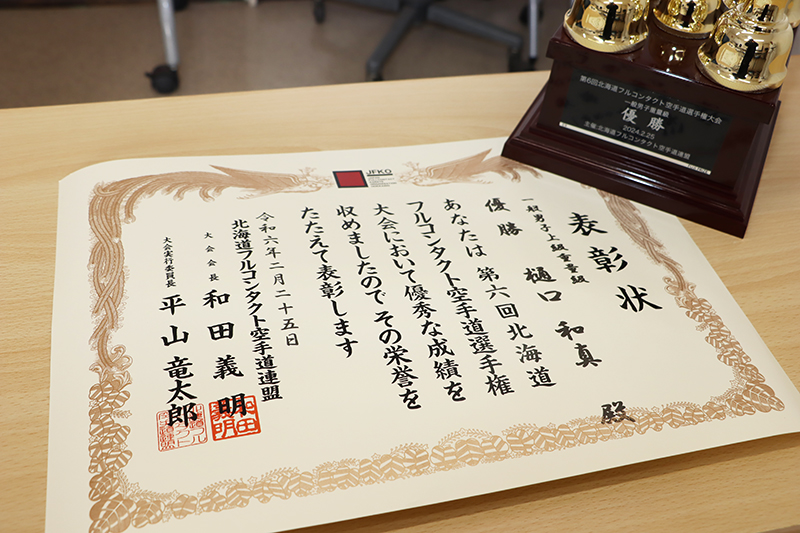 表彰状
一般男子上級重量級
優勝 樋口和真 殿
あなたは 第六回北海道
フルコンタクト空手道選手権
大会において優秀な成績を
収めましたので その栄誉を
たたえて表彰します
令和六年二月二十五日
北海道フルコンタクト空手道連盟
大会会長 和田義明
大会実行委員長 平山竜太郎
JFKO
第6回北海道フルコンタクト空手道選手権大会
一般男子重量級
優勝
2024.2.25
主催:北海道フルコンタクト空手道連盟